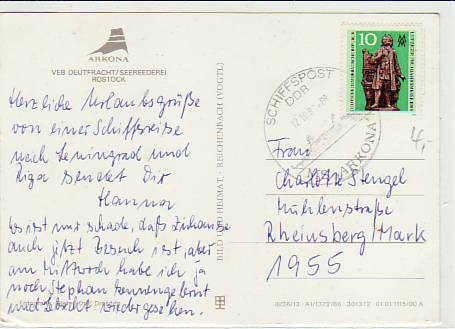 ARKONA
VEB DEUTFRACHT/SEEREEDEREI
ROSTOCK
Herzliche Urlaubsgrüße
von einer Schiffsreise
nach Leningrad und
Riga sendet Dir
Hanna
Es ist nur schade, daß Zuhause
auch jetzt Besuch ist, aber
am Mittwoch habe ich ja
noch Stephan
wiedergesehen.
BILD UND HEIMAT · REICHENBACH (VOGTL)
SCHIFFSPOST
DDR
MS ARKONA
10
4,-
Frau
Charlotte Stengel
Mühlenstraße
Rheinsberg/Mark
1955
III/26/13 A1/1372/86 301372 01 01 1115/00 A